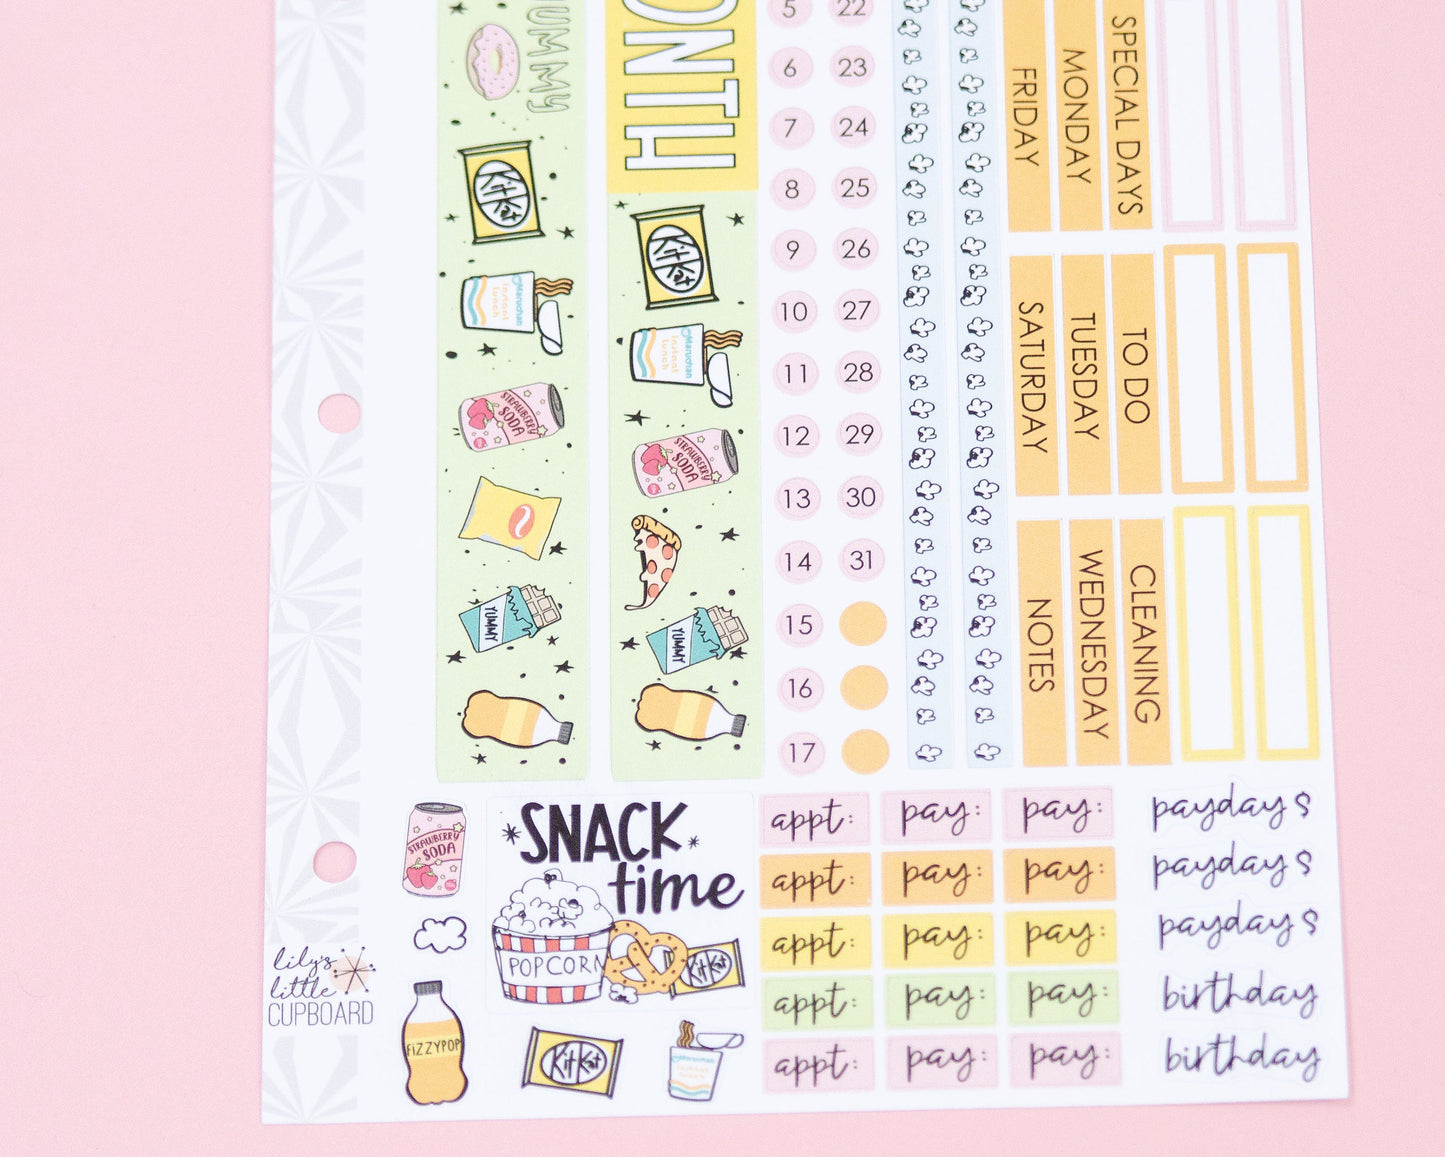 YUMMY
KitKat
Maruchan
Instant
Lunch
STRAWBERRY
SODA
YUMMY
ONTH
KitKat
Maruchan
Instant
Lunch
STRAWBERRY
SODA
YUMMY
5 22
6 23
7 24
8 25
9 26
10 27
11 28
12 29
13 30
14 31
15
16
17
SPECIAL DAYS
MONDAY
FRIDAY
TO DO
TUESDAY
SATURDAY
CLEANING
WEDNESDAY
NOTES
STRAWBERRY
SODA
SNACK
time
POPCORN
KitKat
FIZZYPOP
KitKat
Maruchan
Instant
Lunch
appt: pay: pay: payday $
appt: pay: pay: payday $
appt: pay: pay: payday $
appt: pay: pay: birthday
appt: pay: pay: birthday
lily's
little
CUPBOARD